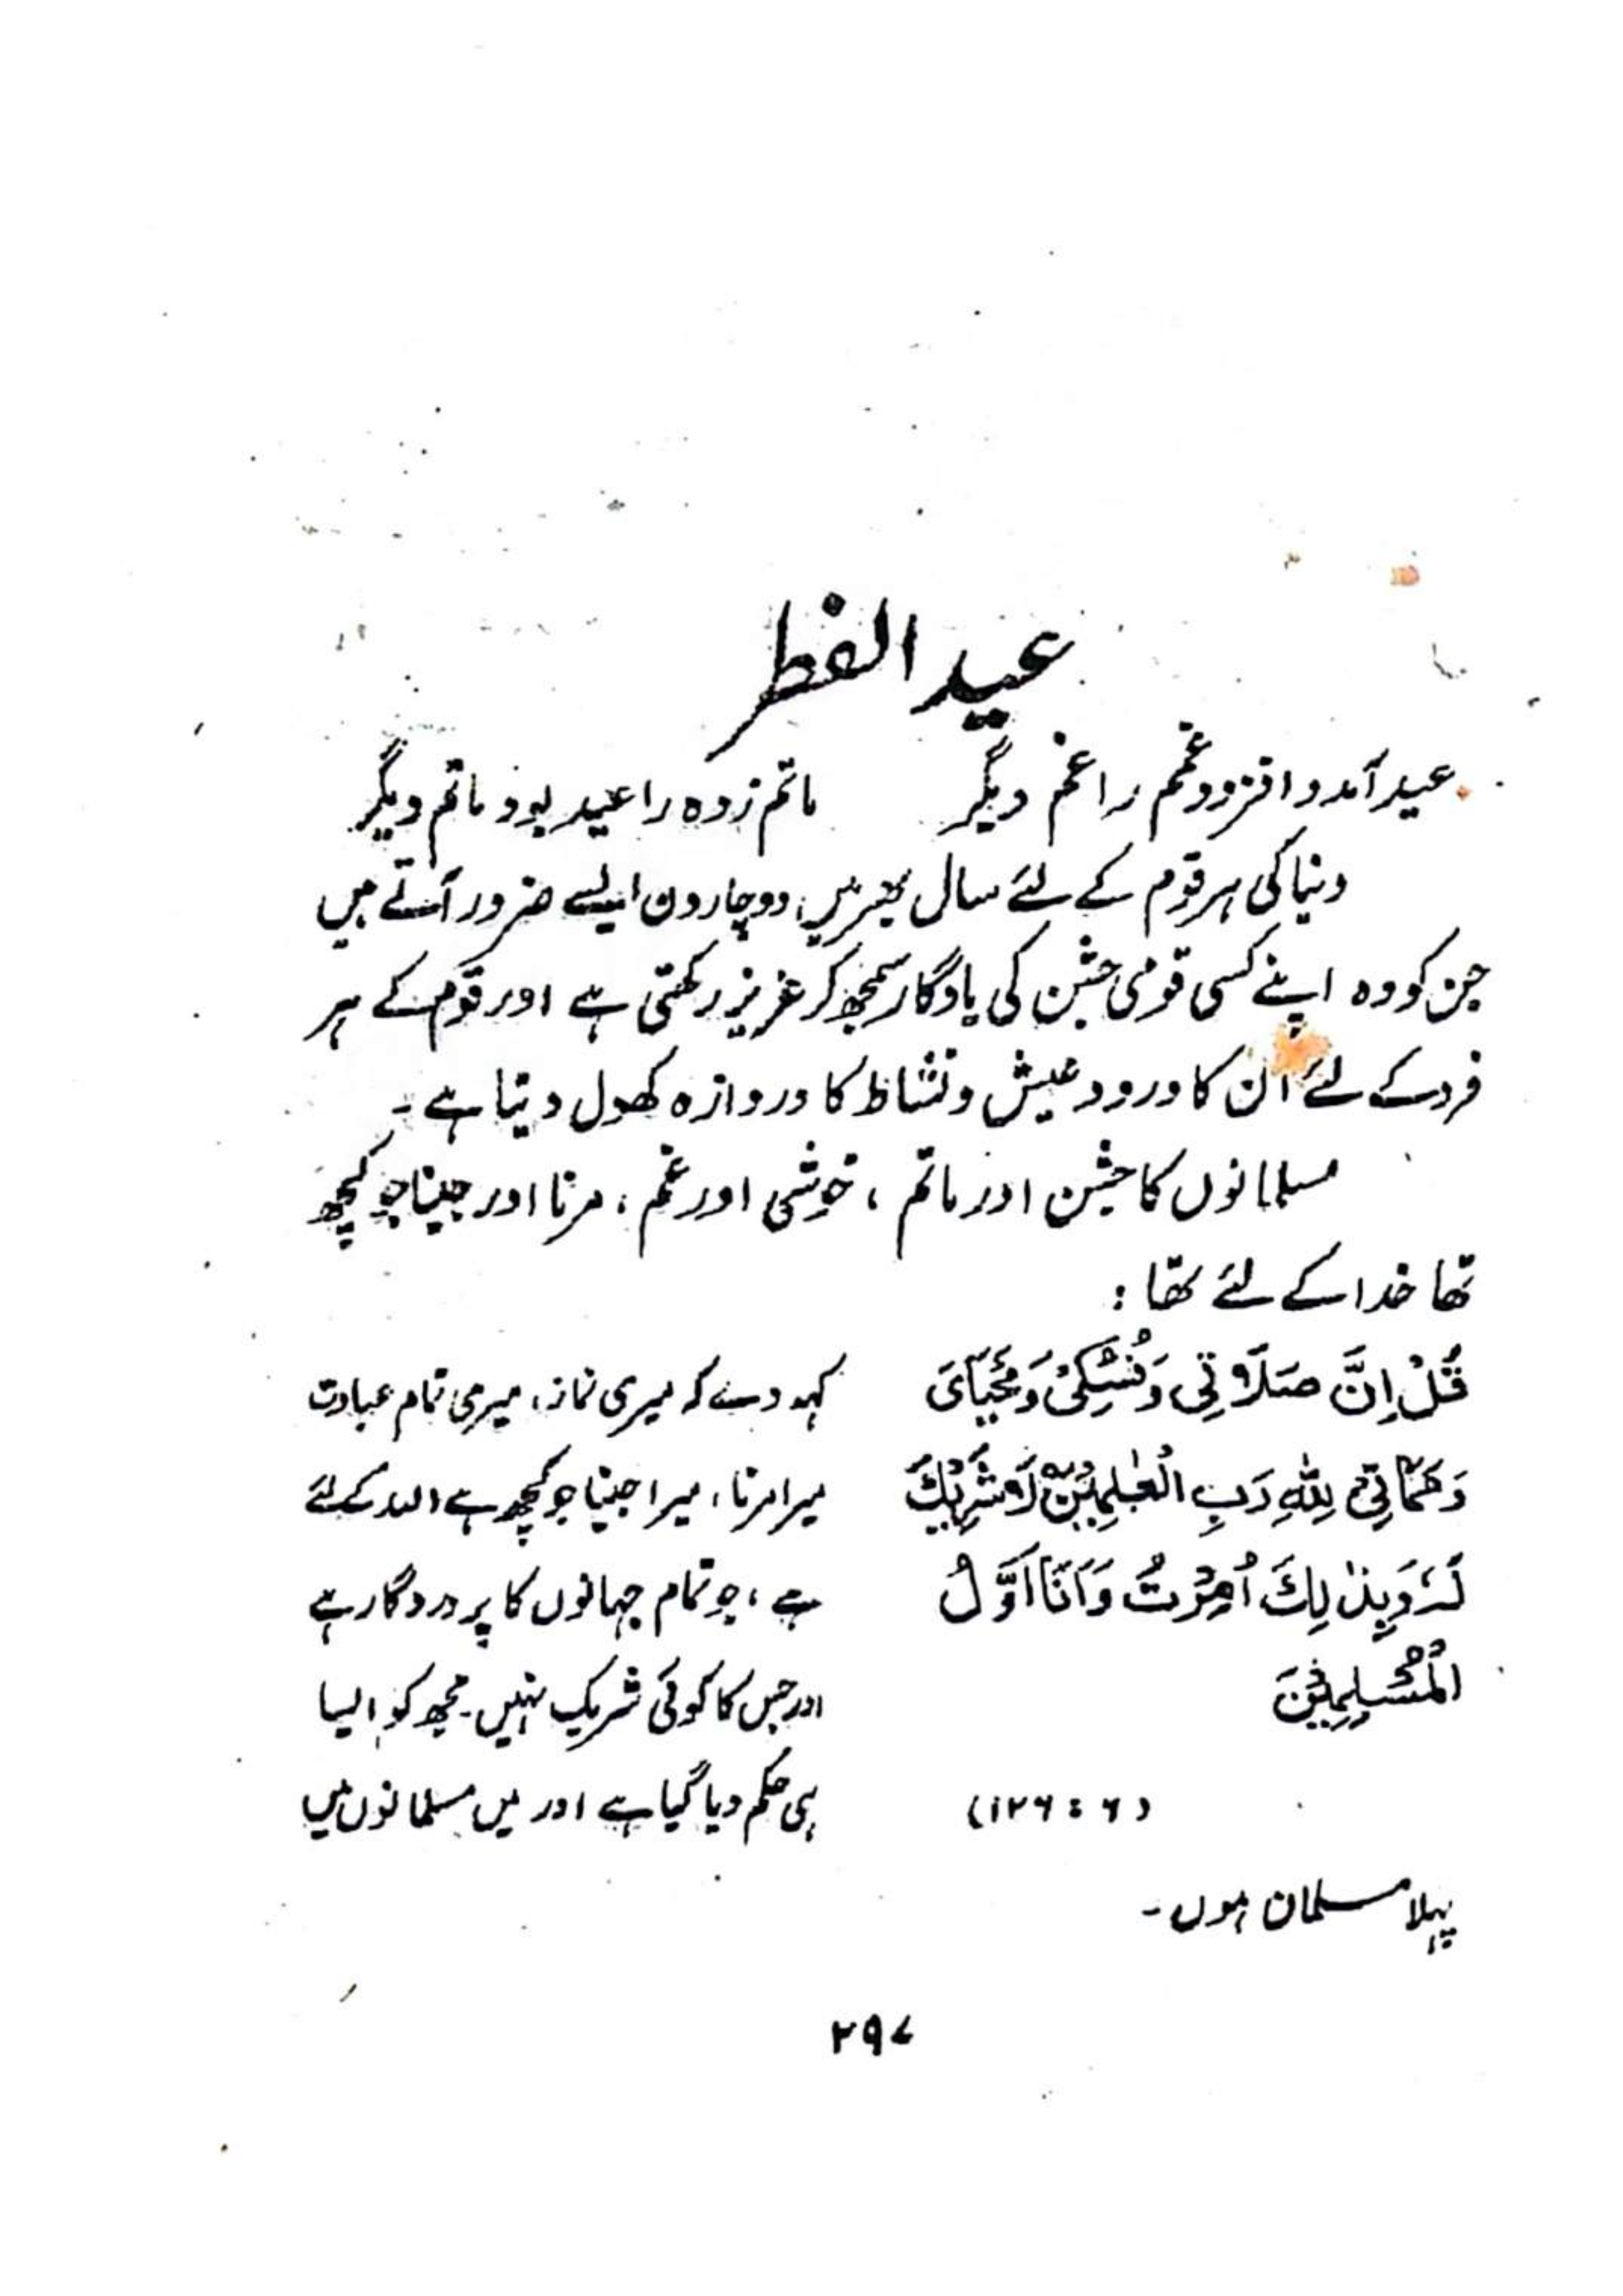 عید الفطر
عید آمد و افزود غمم را غم دیگر ماتم زدہ را عید بود ماتم دیگر
دنیا کی ہر قوم کے لئے سال بھر میں، دوچار دن ایسے ضرور آتے ہیں
جن کو وہ اپنے کسی قومی جشن کی یادگار سمجھ کر عزیز رکھتی ہے اور قوم کے ہر
فرد کے لئے ان کا ورود عیش و نشاط کا دروازہ کھول دیتا ہے۔
مسلمانوں کا جشن اور ماتم ، خوشی اور غم ، مرنا اور جینا جو کچھ
تھا خدا کے لئے تھا :
قُلْ اِنَّ صَلَاتِی وَنُسُکِیْ وَمَحْیَایَ
وَمَمَاتِیْ لِلّٰہِ رَبِ الْعٰلَمِیْنَ لَا شَرِیْکَ
لَہٗ وَبِذٰلِکَ اُمِرْتُ وَاَنَا اَوَّلُ
الْمُسْلِمِیْنَ
(۶ : ۱۲۶)
کہہ دے کہ میری نماز، میری تمام عبادت
میرا مرنا، میرا جینا جو کچھ ہے اللہ کے لئے
ہے ، جو تمام جہانوں کا پروردگار ہے
اور جس کا کوئی شریک نہیں۔ مجھ کو ایسا
ہی حکم دیا گیا ہے اور میں مسلمانوں میں
پہلا مسلمان ہوں۔
۲۹۷